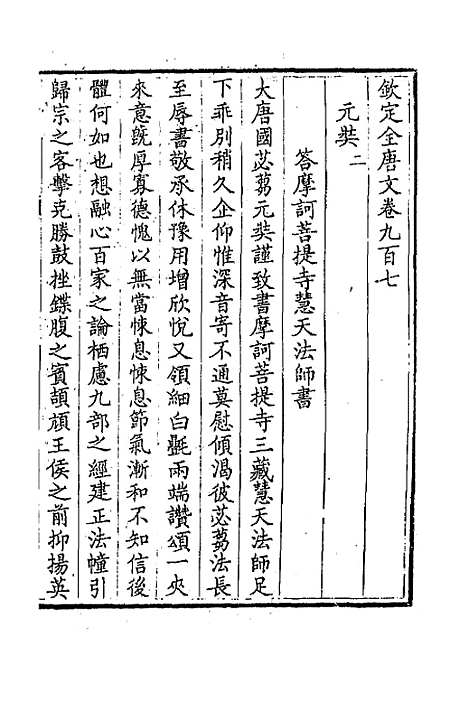 欽定全唐文卷九百七
元奘二
答摩訶菩提寺慧天法師書
大唐國苾芻元奘謹致書摩訶菩提寺三藏慧天法師足
下乖別稍久企仰惟深音寄不通莫慰傾渴彼苾芻法長
至辱書敬承休豫用增欣悅又領細白㲲兩端讚頌一夾
來意旣厚寡德愧以無當悚息悚息節氣漸和不知信後
體何如也想融心百家之論栖慮九部之經建正法幢引
歸宗之客擊克勝鼓挫鍱腹之賓頡頏王侯之前抑揚英